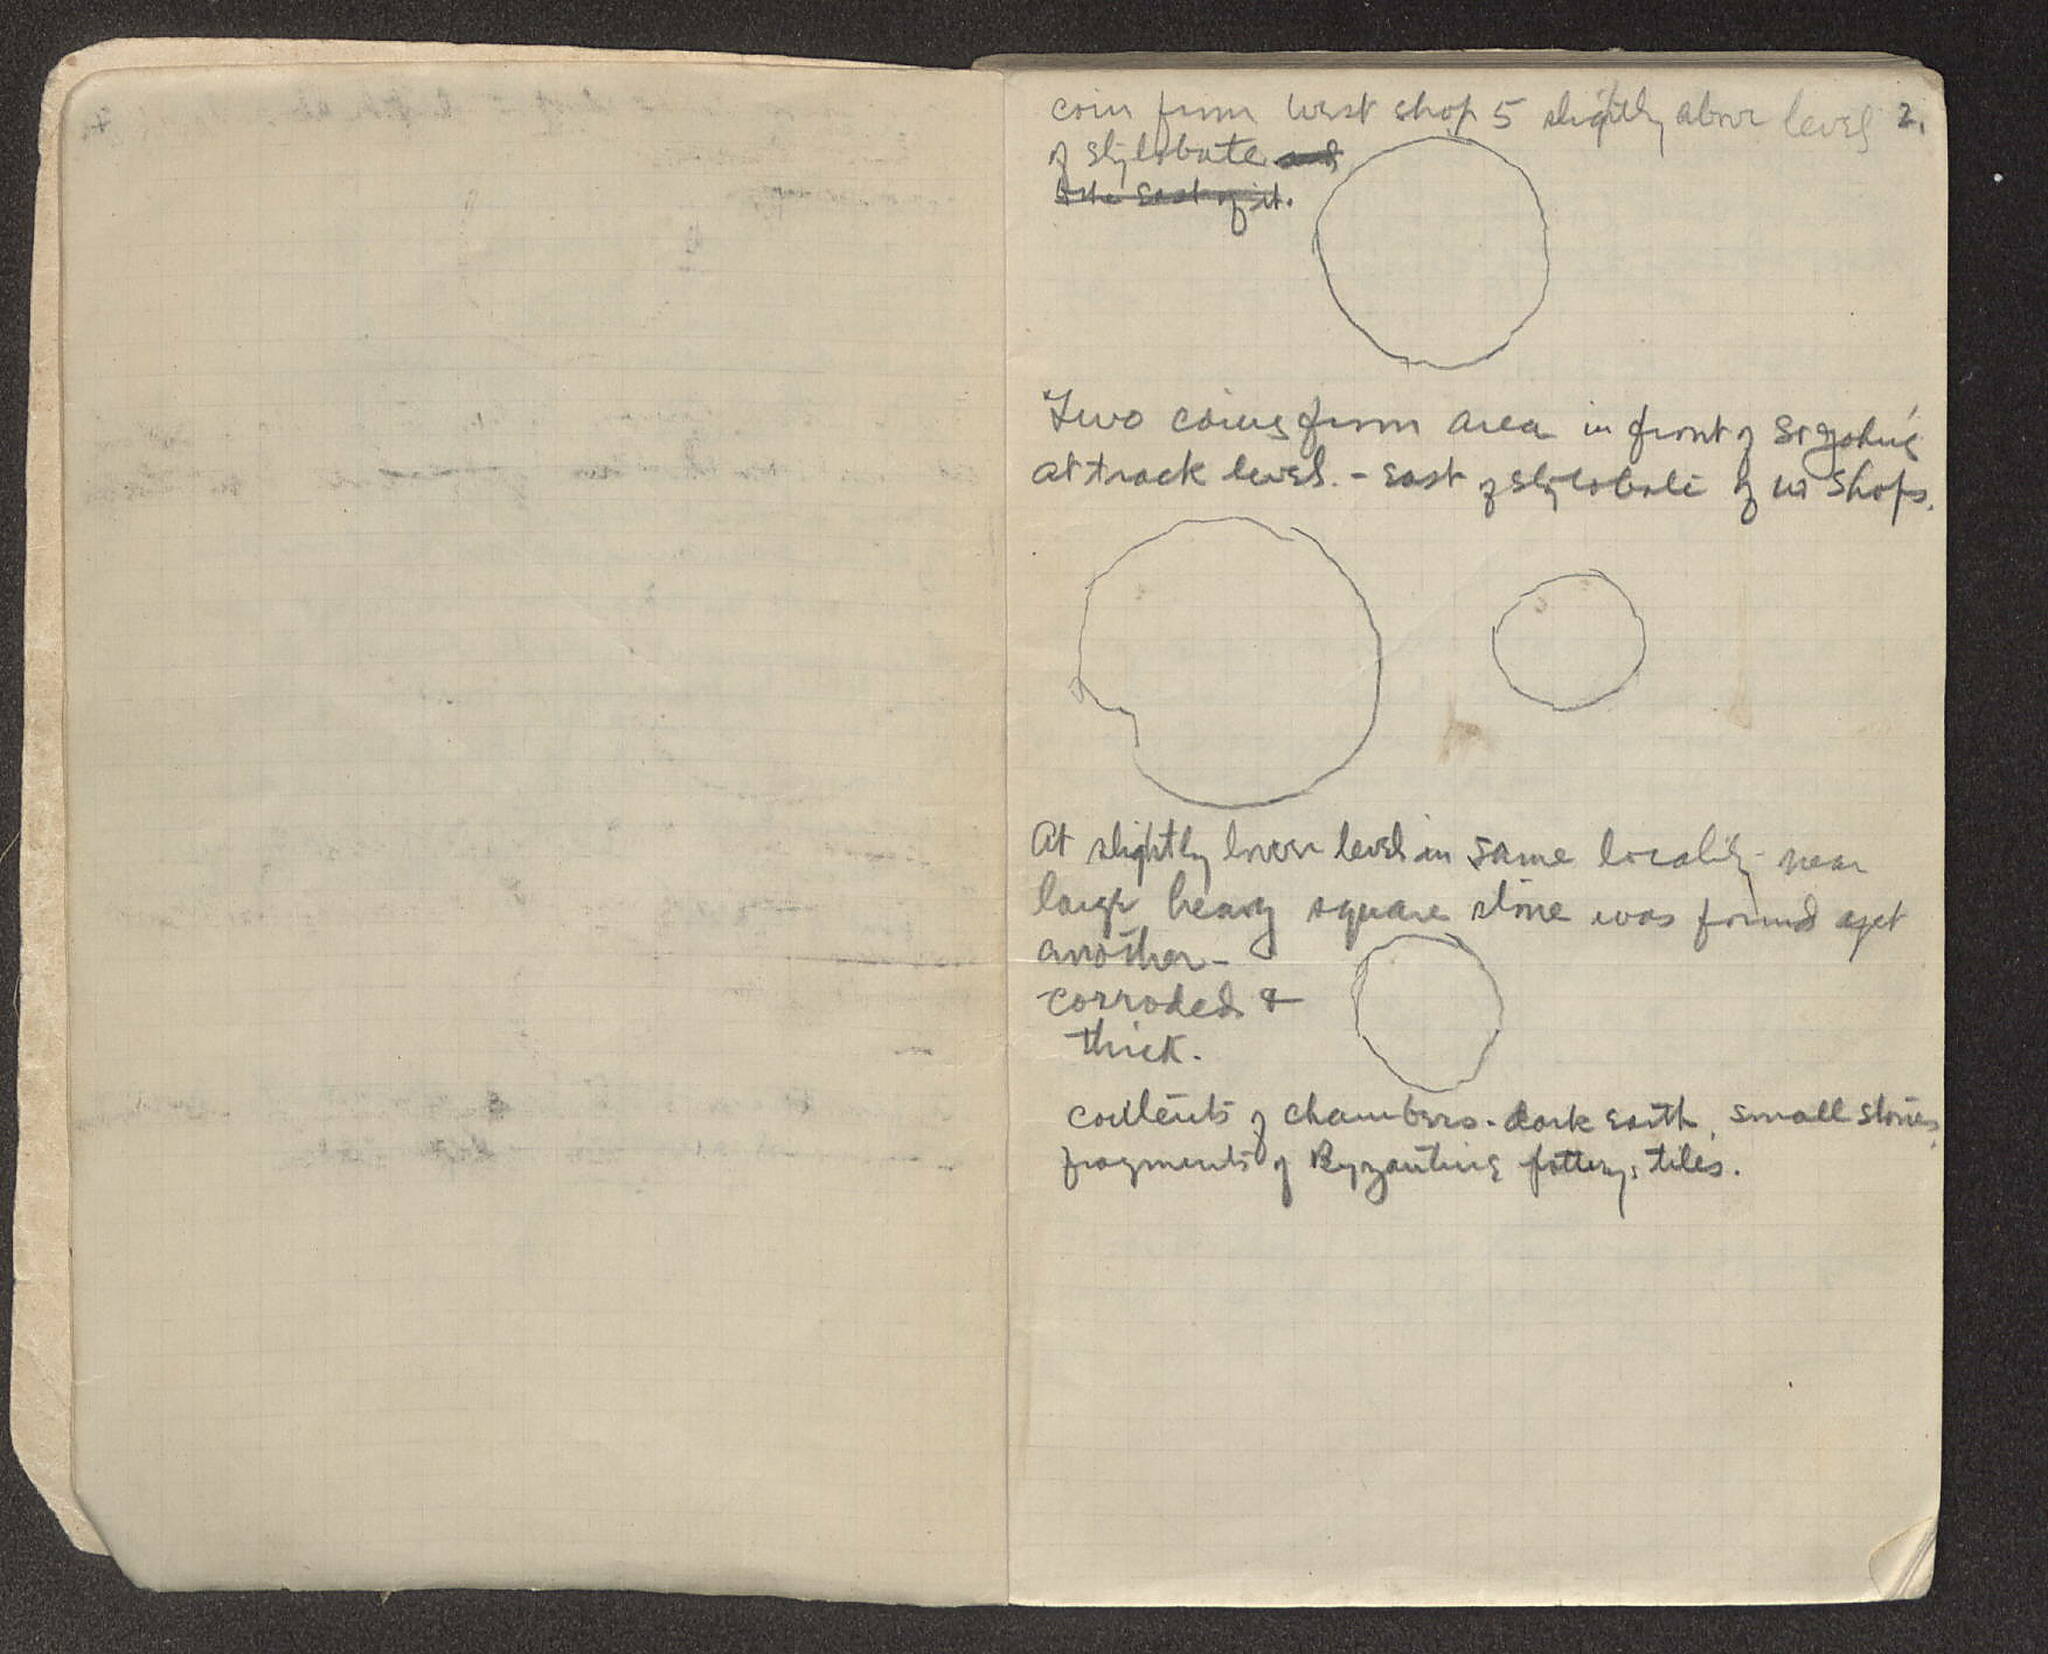 coin from West shop 5 slightly above level 2.
of stylobate and
to the East of it.
Two coins from area in front of St John's
at track level. - East of stylobate of W Shops.
At slightly lower level in same locality near
large heavy square stone was found yet
another -
corroded &
thick.
contents of chambers. dark earth, small stones,
fragments of Byzantine pottery, tiles.